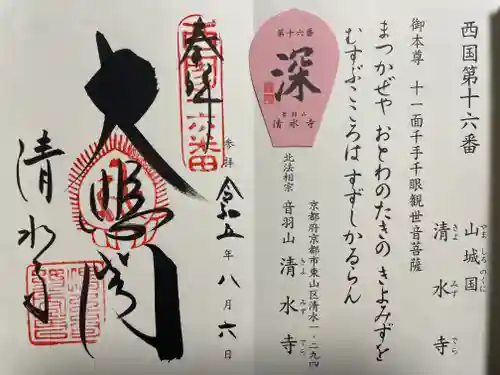 西国第十六番
山城国
やましろのくに
清水寺
きよみずでら
御本尊 十一面千手千眼観世音菩薩
まつかぜや おとわのたきの きよみずを
むすぶこころは すずしかるらん
第十六番
深
きよみず
清水寺
京都府京都市東山区清水一‐二九四
北法相宗 音羽山 清水寺
きよみずでら
奉拝
参拝 令和五年八月六日
大悲閣
清水寺